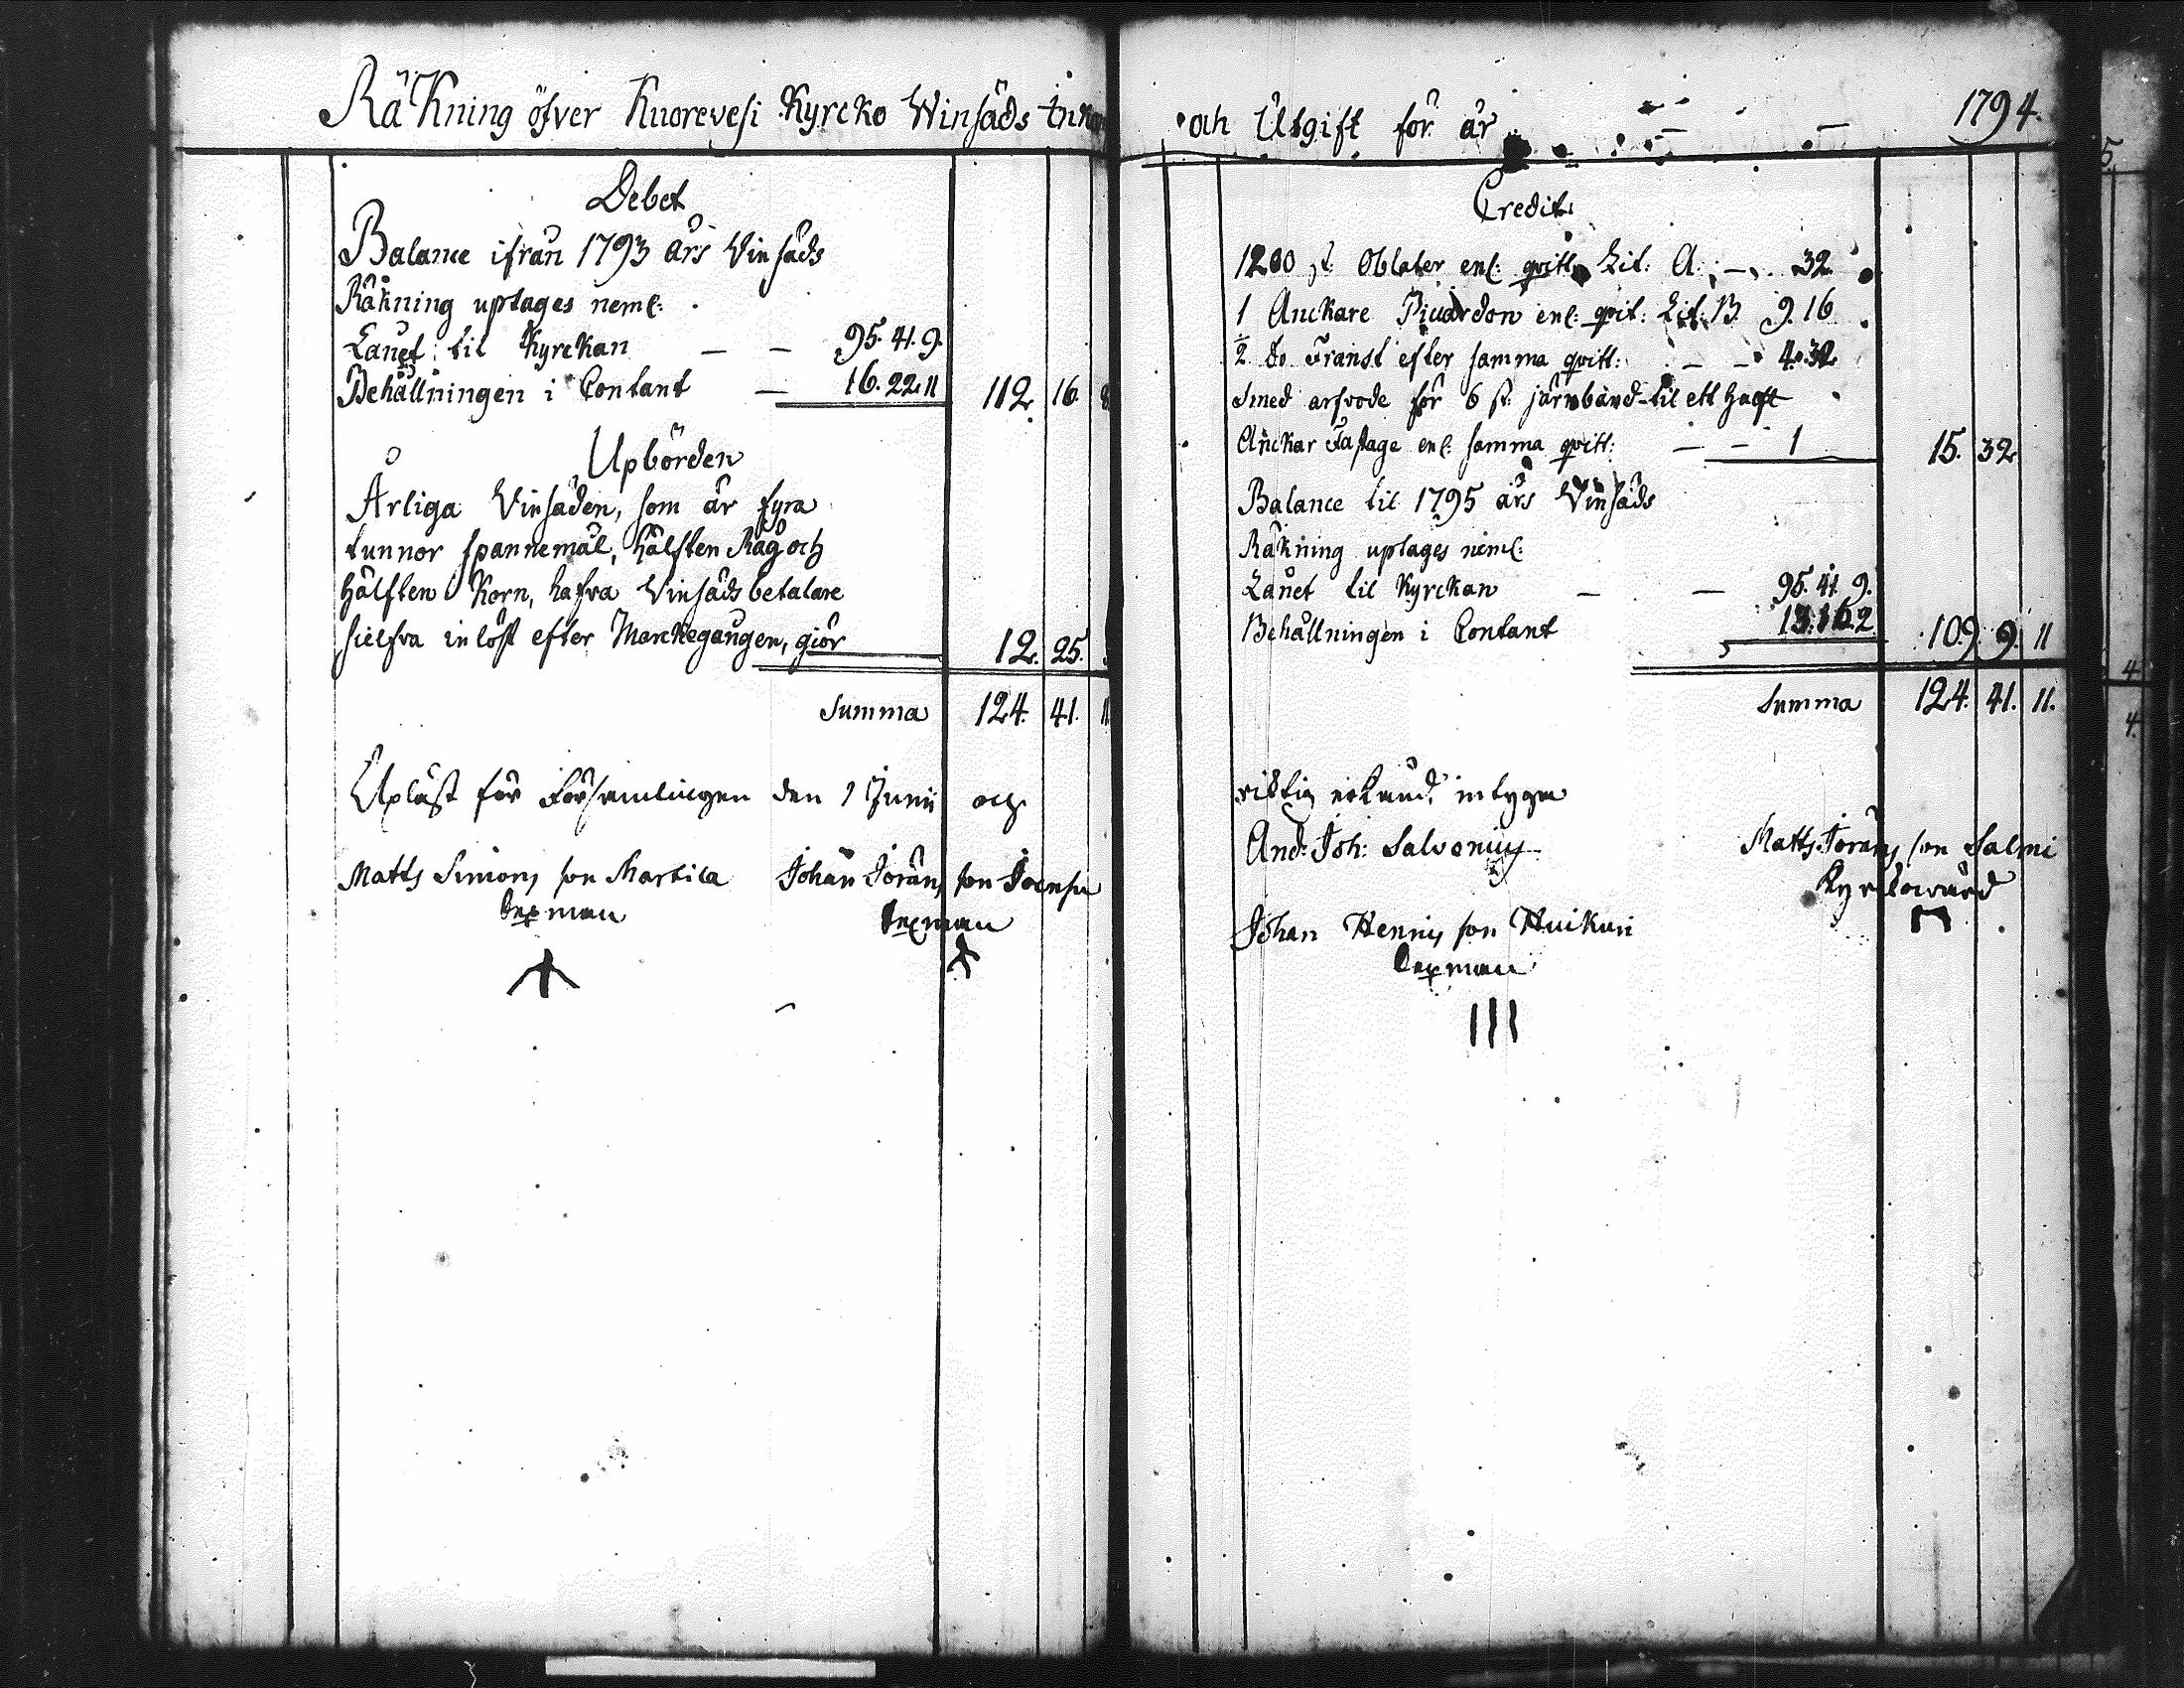 Räkning öfver Kuorevesi Kyrcko Winsäds Ink
Debet
Balance ifrån 1793 års Vinsäds
Räkning uptages neml:
Lånet til Kyrckan — — 95. 41. 9.
Behållningen i Contant — 16. 22. 11 112. 16. 8
Upbörden
Årliga Vinsäden, som är fyra
tunnor spannemål, hälften Råg och
hälften Korn, hafva Vinsädsbetalare
sielfva inlöst efter Marckegången, giör 12. 25.
Summa 124. 41. 11
Upläst för Församlingen den 1 Junii och
Matts Simons son Martila Johan Jörans son
Sexman Sexman
och Utgift för år — — 1794.
Credit
1200 st: Oblater enl: qvitt: Lit: A: — 32.
1 Anckare Picardon enl: qvit: Lit: B 9. 16
½ do Franst efter samma qvitt: — 4. 32
Smed arfvode för 6 st: järnband til ett halft
Anckar Fastage enl: samma qvitt: — — 1 15. 32
Balance til 1795 års Vinsäds
Räkning uptages neml:
Lånet til Kyrckan — — 95. 41. 9.
Behållningen i Contant 13. 16. 2 109. 9. 11
Summa 124. 41. 11.
riktig erkänd, intyga
And: Joh: Salvenius Matts Jörans son Salmi
Kyrkovärd
Johan Henrics son Huikuri
Sexman
III
5.
4
4.